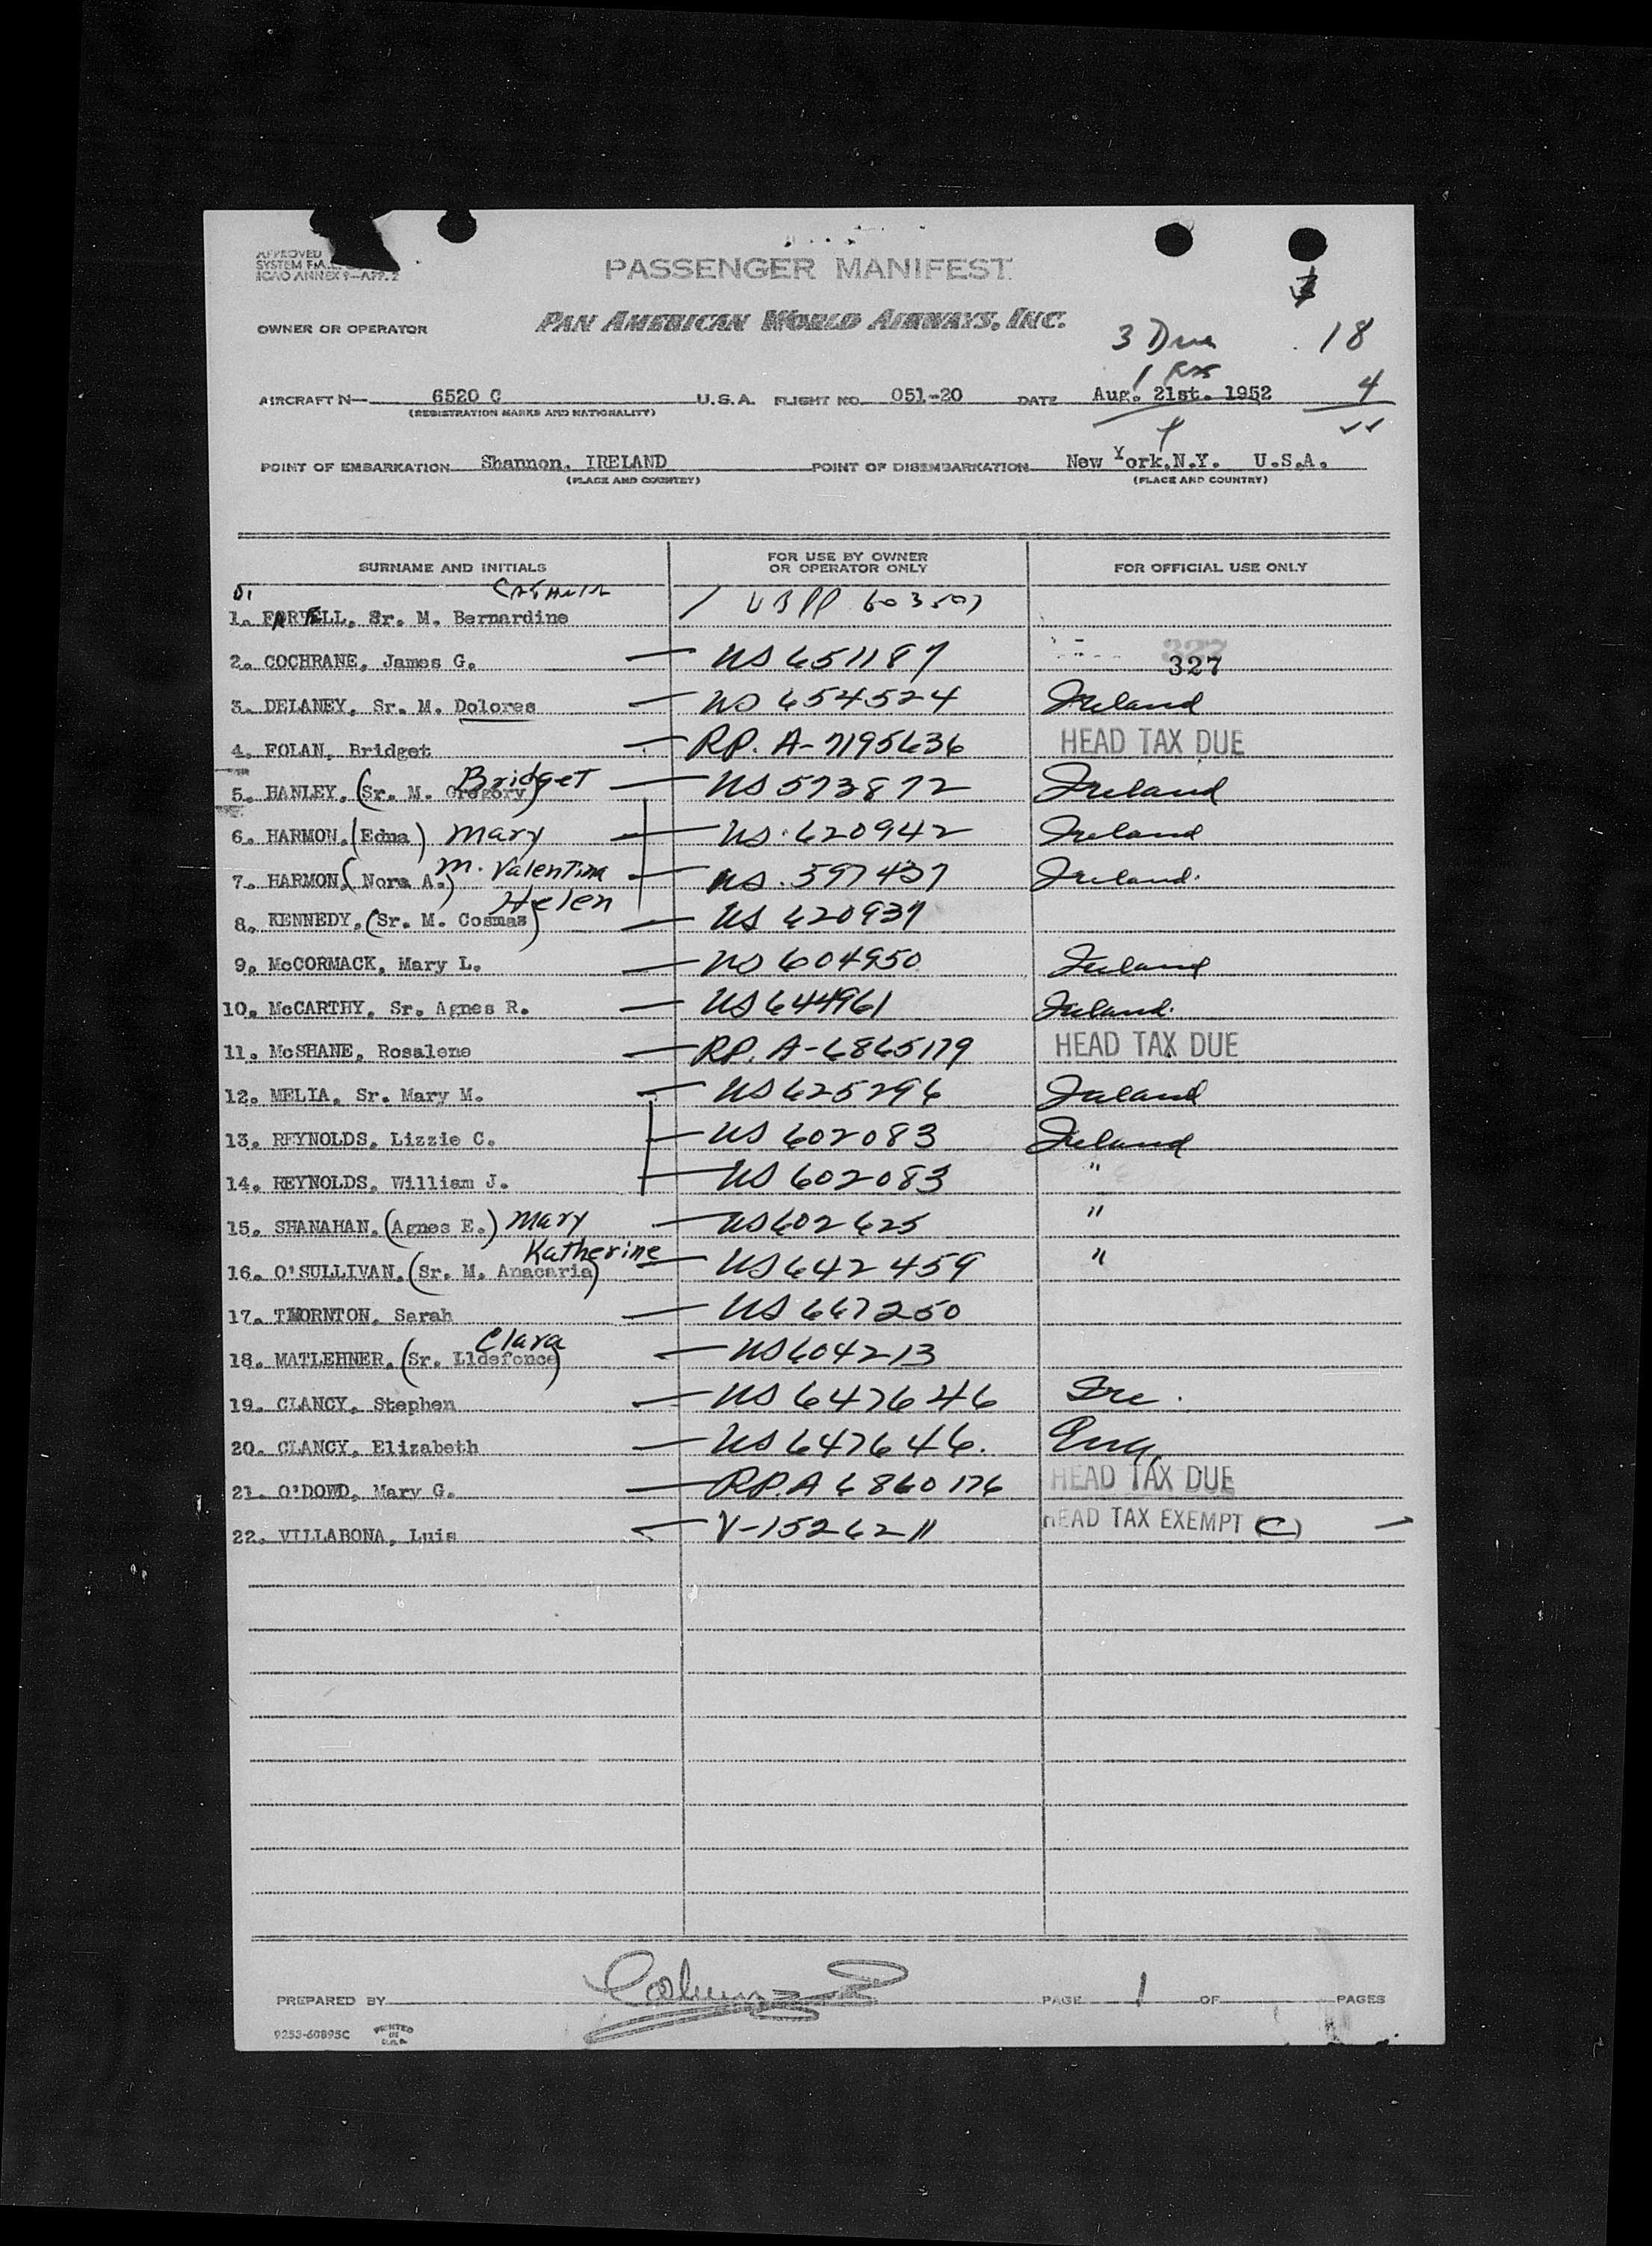 APPROVED
SYSTEM
ICAO ANNEX 9—APP. 2
PASSENGER MANIFEST
OWNER OR OPERATOR PAN AMERICAN WORLD AIRWAYS, INC.
3 Due 18
AIRCRAFT N— 6520 C U.S.A. FLIGHT NO. 051-20 DATE Aug. 21st. 1952 4
(REGISTRATION MARKS AND NATIONALITY)
POINT OF EMBARKATION Shannon, IRELAND POINT OF DISEMBARKATION New York,N.Y. U.S.A.
(PLACE AND COUNTRY) (PLACE AND COUNTRY)
SURNAME AND INITIALS FOR USE BY OWNER OR OPERATOR ONLY FOR OFFICIAL USE ONLY
1. Sr. M. Bernardine
2. COCHRANE, James G. — US 651187 327
3. DELANEY, Sr. M. Dolores — US 654524 Ireland
4. FOLAN, Bridget — RP. A-7195636 HEAD TAX DUE
5. HANLEY, (Sr. M. Gregory) Bridget — US 573872 Ireland
6. HARMON, (Edna) Mary — US. 620942 Ireland
7. HARMON, (Nora A.) M. Valentina — US. 597437 Ireland.
8. KENNEDY, (Sr. M. Cosmas) Helen — US 620937
9. McCORMACK, Mary L. — US 604950 Ireland
10. McCARTHY, Sr. Agnes R. — US 644961 Ireland.
11. McSHANE, Rosalene — RP. A-6865179 HEAD TAX DUE
12. MELIA, Sr. Mary M. — US 625296 Ireland
13. REYNOLDS, Lizzie C. — US 602083 Ireland
14. REYNOLDS, William J. — US 602083 "
15. SHANAHAN, (Agnes E.) Mary — US 602625 "
16. O'SULLIVAN, (Sr. M. Anacaria) Katherine — US 642459 "
17. THORNTON, Sarah — US 667250
18. MATLEHNER, (Sr. Lldefonce) Clara — US 604213
19. CLANCY, Stephen — US 647646 Ire.
20. CLANCY, Elizabeth — US 647646. Eng
21. O'DOWD, Mary G. — RP. A 6860176 HEAD TAX DUE
22. VILLABONA, Luis — V-1526211 HEAD TAX EXEMPT (C) —
PREPARED BY PAGE 1 OF PAGES
9253-60895C PRINTED IN U.S.A.